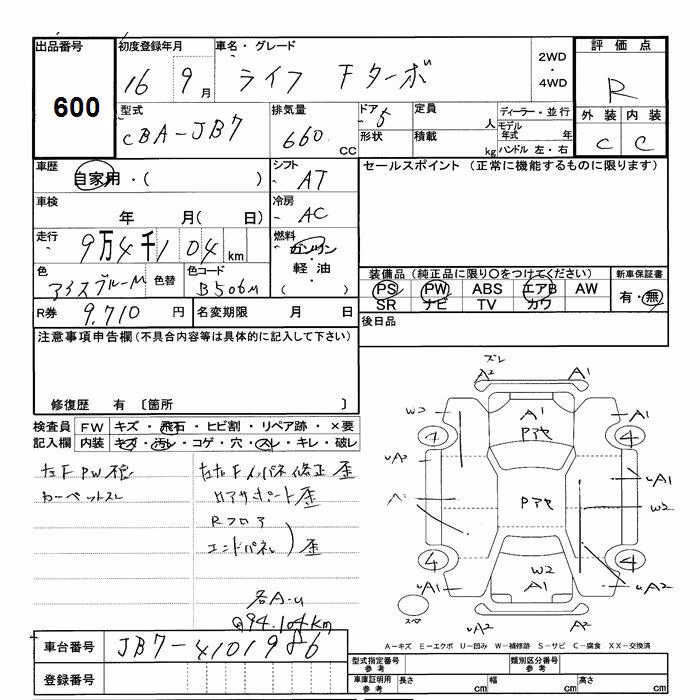 出品番号 初度登録年月 車名・グレード 2WD・4WD 評価点
600 16 9月 ライフ Fターボ R
型式 排気量 ドア 定員 ディーラー・並行 外装 内装
CBA-JB7 660 CC 5 人 モデル年式 年 C C
形状 積載 kg ハンドル 左・右
車歴 自家用・( ) シフト AT セールスポイント (正常に機能するものに限ります)
車検 年 月( 日) 冷房 AC
走行 9万4千104 km 燃料 ガソリン 軽油 ( )
色 アイスブルーM 色替 色コード B506M
装備品 (純正品に限り○をつけてください) 新車保証書
PS PW ABS エアB AW 有・無
SR ナビ TV カワ
R券 9,710 円 名変期限 月 日 後日品
注意事項申告欄 (不具合内容等は具体的に記入して下さい)
修復歴 有 〔箇所 〕
検査員 FW キズ・飛石・ヒビ割・リペア跡・×要
記入欄 内装 キズ・汚レ・コゲ・穴・スレ・キレ・破レ
カーペットスレ
インパネ修正 歪
コアサポート歪
Rフロア
エンドパネル) 歪
各A-U
@94.104km
ズレ
A² A1
W3 A1 A1
Pアセ
4 4
UA² UA1
A² Pアセ W2
4 4
UA1 W2 UA2
A1
スペア UA² A²
A-キズ E-エクボ U-凹み W-補修跡 S-サビ C-腐食 XX-交換済
車台番号 JB7-4101986
登録番号
型式指定番号 参考 類別区分番号 参考
車庫証明用 参考 長さ cm 幅 cm 高さ cm